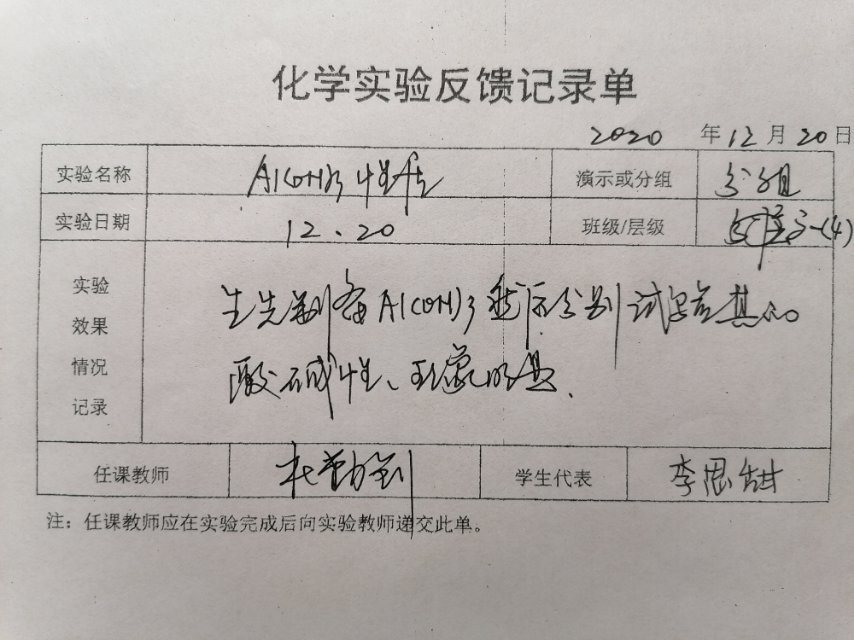 化学实验反馈记录单
2020 年12月20日
实验名称 Al(OH)3 性质 演示或分组 分组
实验日期 12.20 班级/层级 (4)
实验效果情况记录
生先制备Al(OH)3 然后分别试验其
酸碱性、现象明显.
任课教师 杜勤 学生代表 李思甜
注：任课教师应在实验完成后向实验教师递交此单。